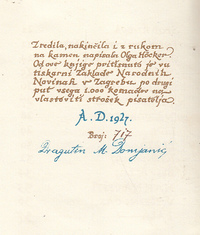 Zredila, nakinčila i z rukom
na kamen napisala Olga Höcker.
Od ove knjige pritisnuto je vu
tiskarni Zaklade Narodnih
Novinah v Zagrebu po drugi
put vsega 1.000 komadov na
vlastoviti strošek pisatelja.
A. D. 1927.
Broj: 717
Dragutin M Domjanić